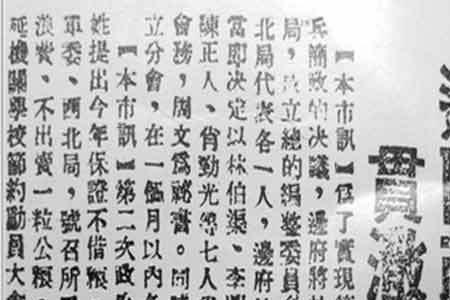 員
【本市訊】爲了實現
兵簡政的決議,邊府將
局,立總的編整委員
北局代表各一人,邊府
當即決定以林伯渠、李
陳正人、肖勁光等七人
會務,周文爲祕書。同
立分會,在一個月以內各
【本市訊】第二次政
姓提出今年保證不借粮
軍委、西北局,號召所
浪費、不出賣一粒公粮
延機關學校節約動員大會